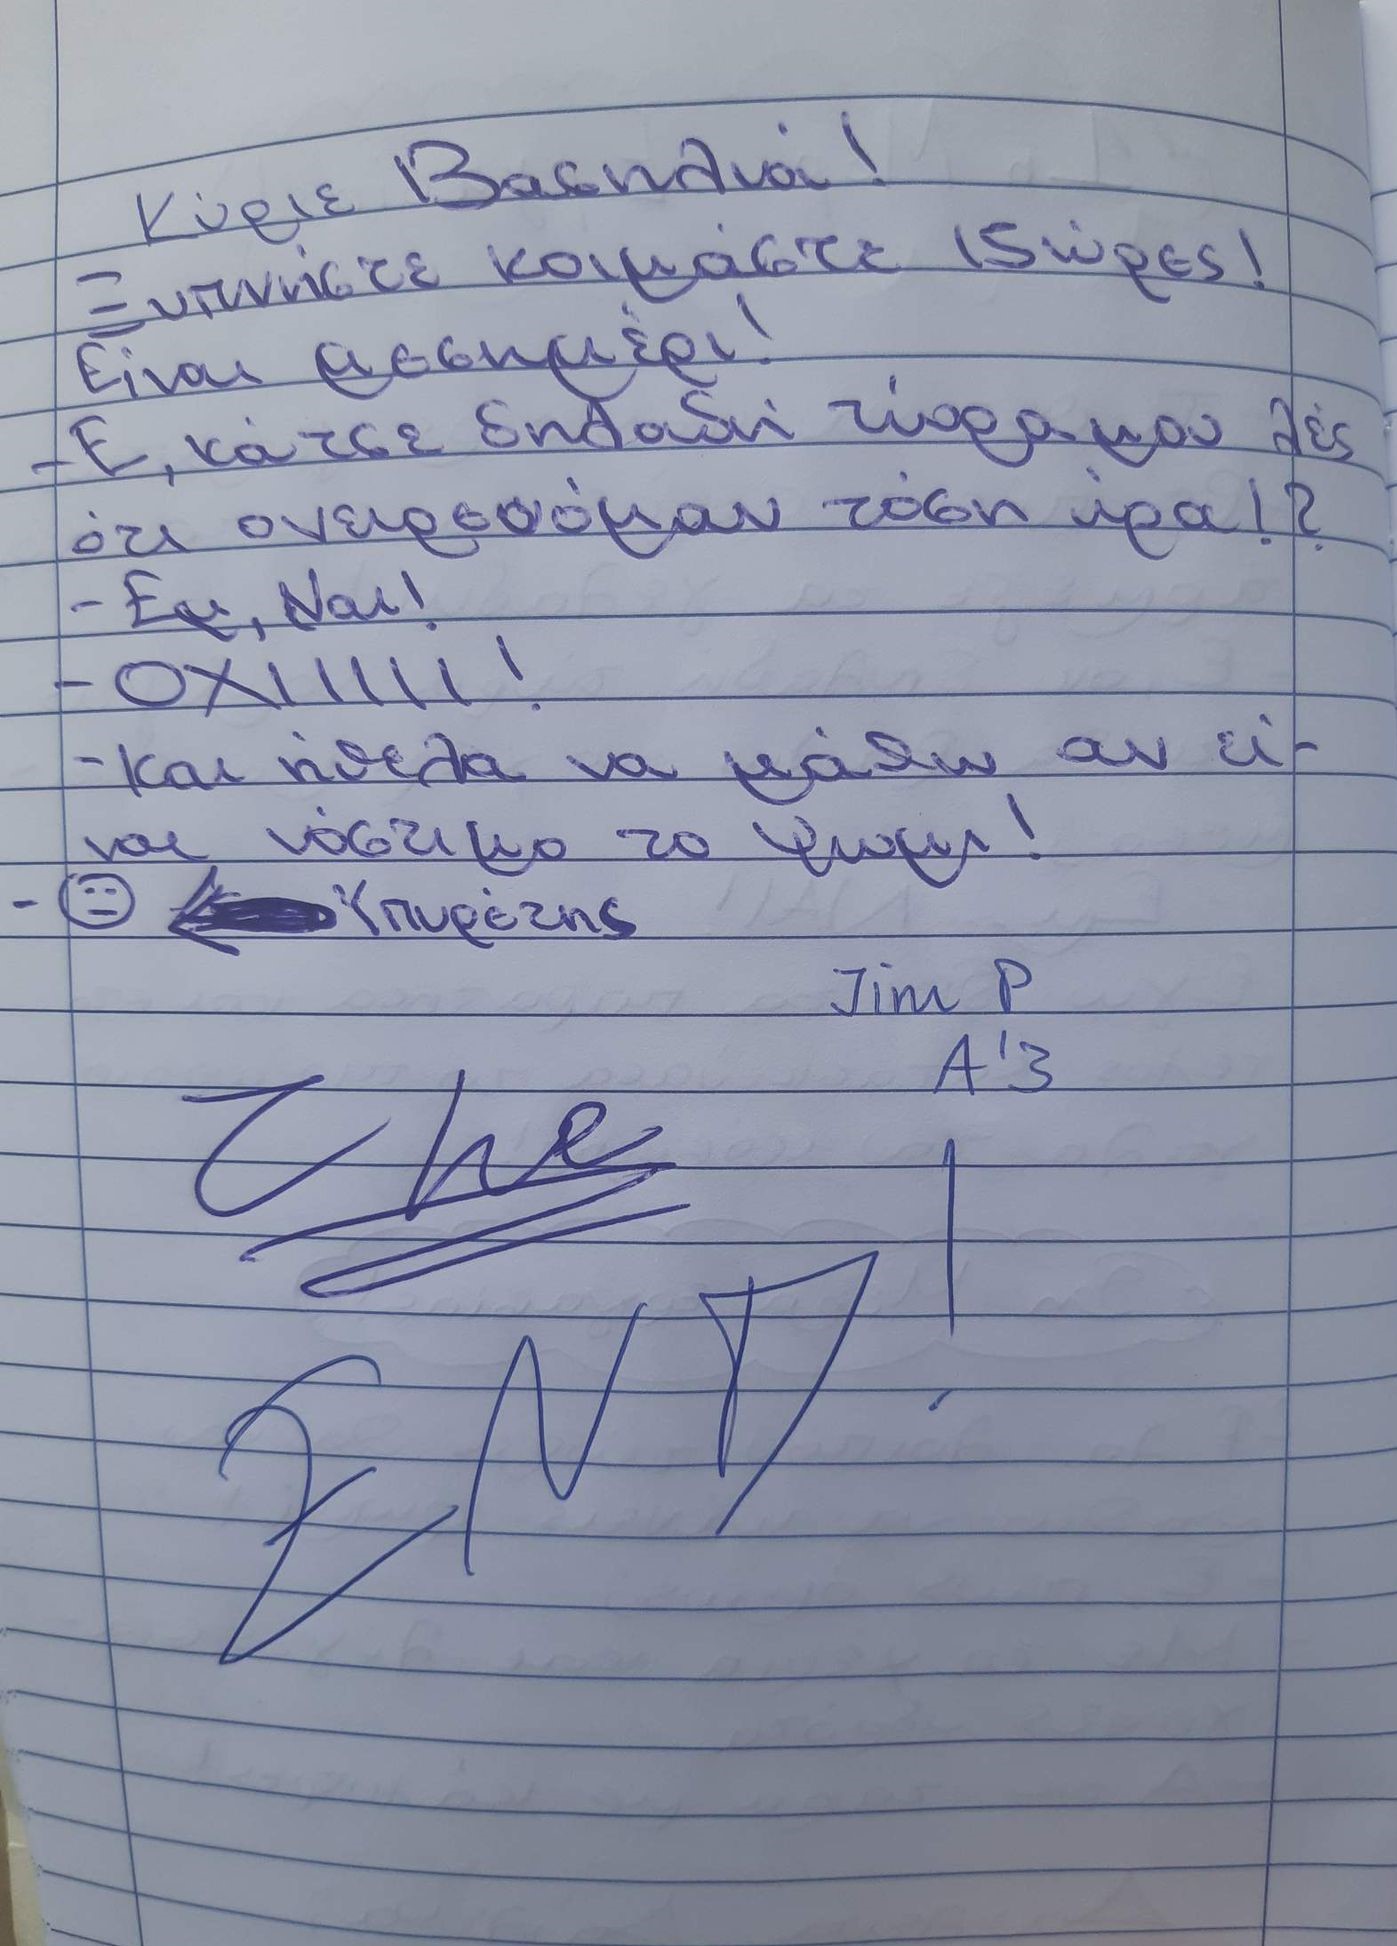 Κύριε Βασηλιά!
Ξυπνήστε κοιμάστε 15 ώρες!
Είναι μεσημέρι!
-Ε, κάτσε δηλαδή τώρα μου λές
ότι ονειρευόμαν τόση ώρα!?
-Εμ, Ναι!
-ΟΧΙΙΙΙΙ!
-Και ήθελα να μάθω αν εί-
ναι νόστιμο το ψωμι!
- Υπυρέτης
Jim P
Α'3
The
END!